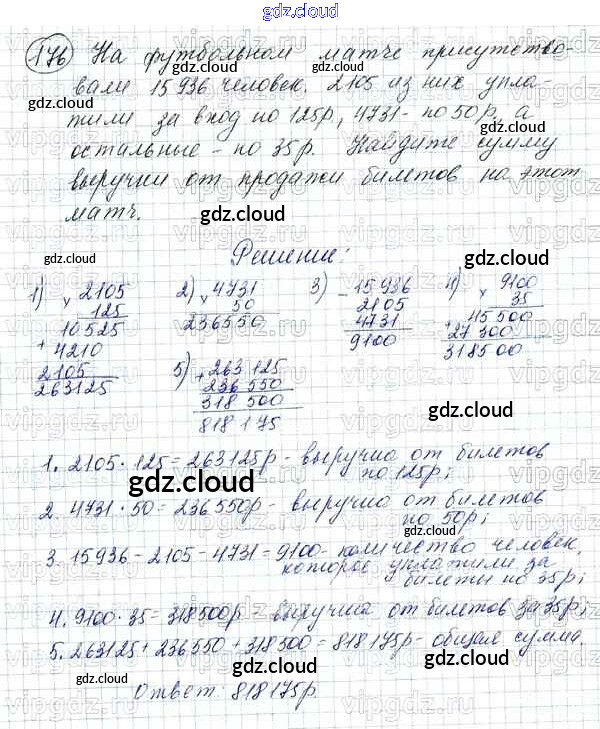 gdz.cloud
176 На футбольном матче присутство-
вали 15936 человек. 2105 из них упла-
тили за вход по 125р, 4731 - по 50р, а
остальные - по 35р. Найдите сумму
выручки от продажи билетов на этот
матч.
Решение:
1) 2105
× 125
10525
+ 4210
2105
263125
2) 4731
× 50
236550
3) - 15936
2105
4731
9100
4) 9100
× 35
+ 45500
27300
318500
5) + 263125
236550
318500
818175
1. 2105 · 125 = 263125р - выручка от билетов
по 125р;
2. 4731 · 50 = 236550р - выручка от билетов
по 50р;
3. 15936 - 2105 - 4731 = 9100 - количество человек,
которые уплатили за
билеты по 35р;
4. 9100 · 35 = 318500р выручка от билетов за 35р;
5. 263125 + 236550 + 318500 = 818175р - общая сумма.
Ответ: 818175р.